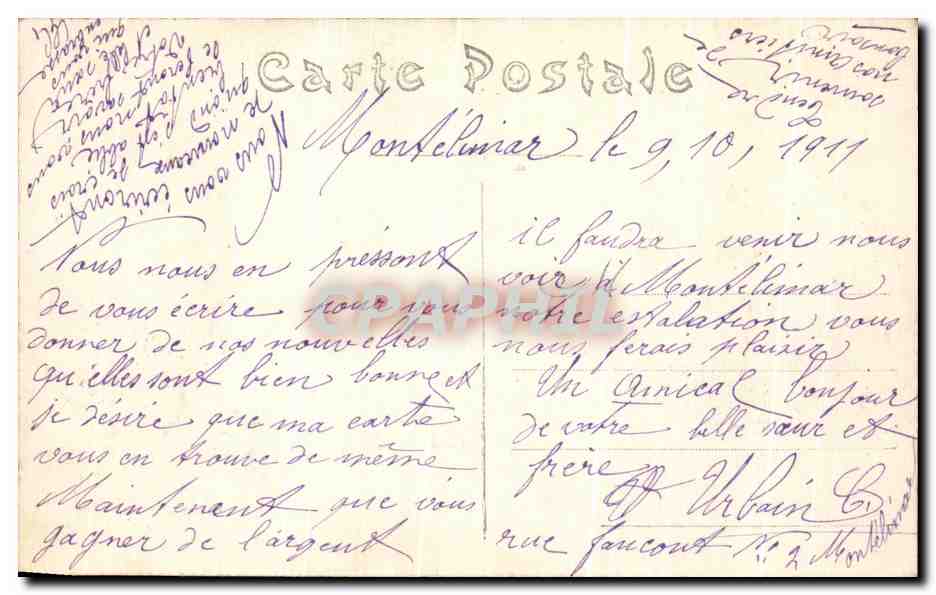 Carte Postale
Montélimar le 9, 10, 1911
Nous nous en préssont
de vous écrire pour vous
donner de nos nouvelles
qu'elles sont bien bonne et
je désire que ma carte
vous en trouve de même
Maintenent que vous
gagner de l'argent
il faudra venir nous
voir à Montélimar
notre estalation vous
nous ferais plaisir
Un amical bonjour
de votre belle sœur et
frère
Urbain C.
rue faucont N: 2 Montélimar
Nous vous écriront
de nouveaux
quand
tendre
souvenir de
bonsoir
CPAPHIL